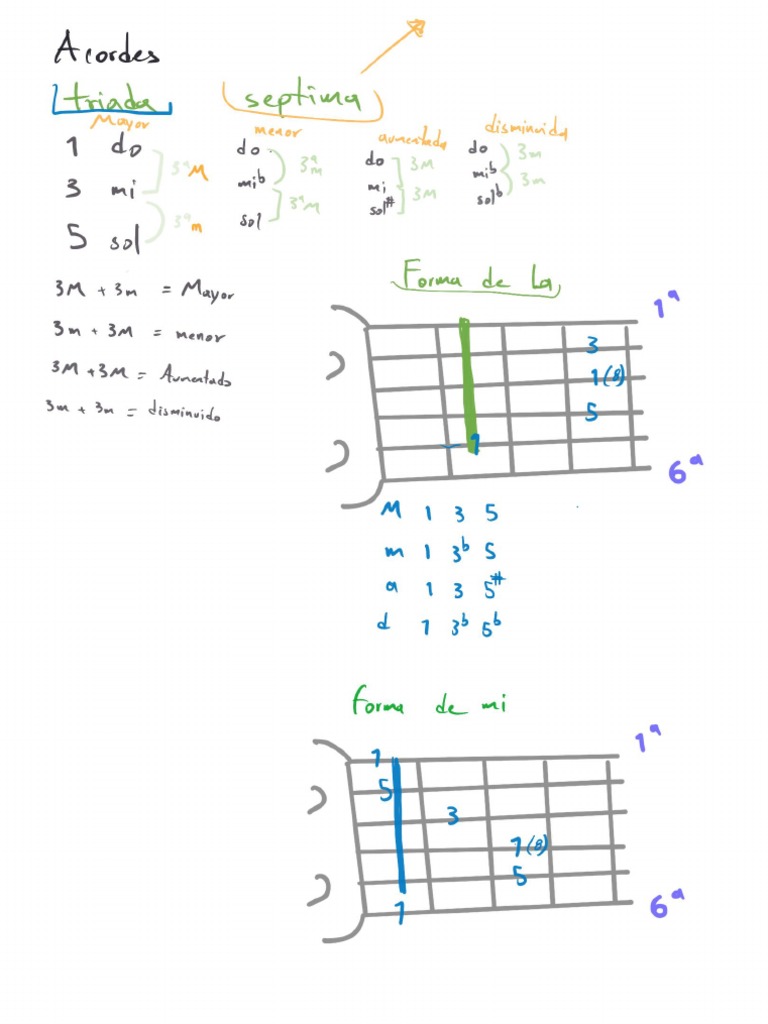 Acordes
triada septima
Mayor menor aumentada disminuida
1 do
3 mi
5 sol
3ªM
3ªm
do
mib
sol
3ªm
3ªM
do
mi
sol#
3M
3M
do
mib
solb
3m
3m
3M + 3m = Mayor
3m + 3M = menor
3M + 3M = Aumentado
3m + 3m = disminuido
Forma de La
1ª
3
1(8)
5
1
6ª
M 1 3 5
m 1 3b 5
a 1 3 5#
d 1 3b 5b
forma de mi
1ª
1
5
3
1(8)
5
1
6ª